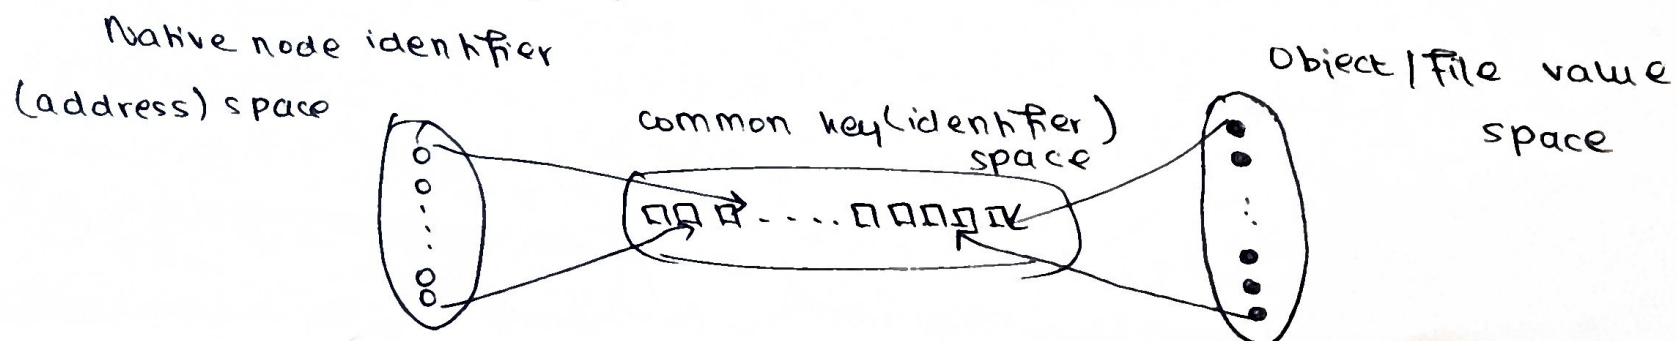 Native node identifier
(address) space
common key(identifier)
space
Object / File value
space